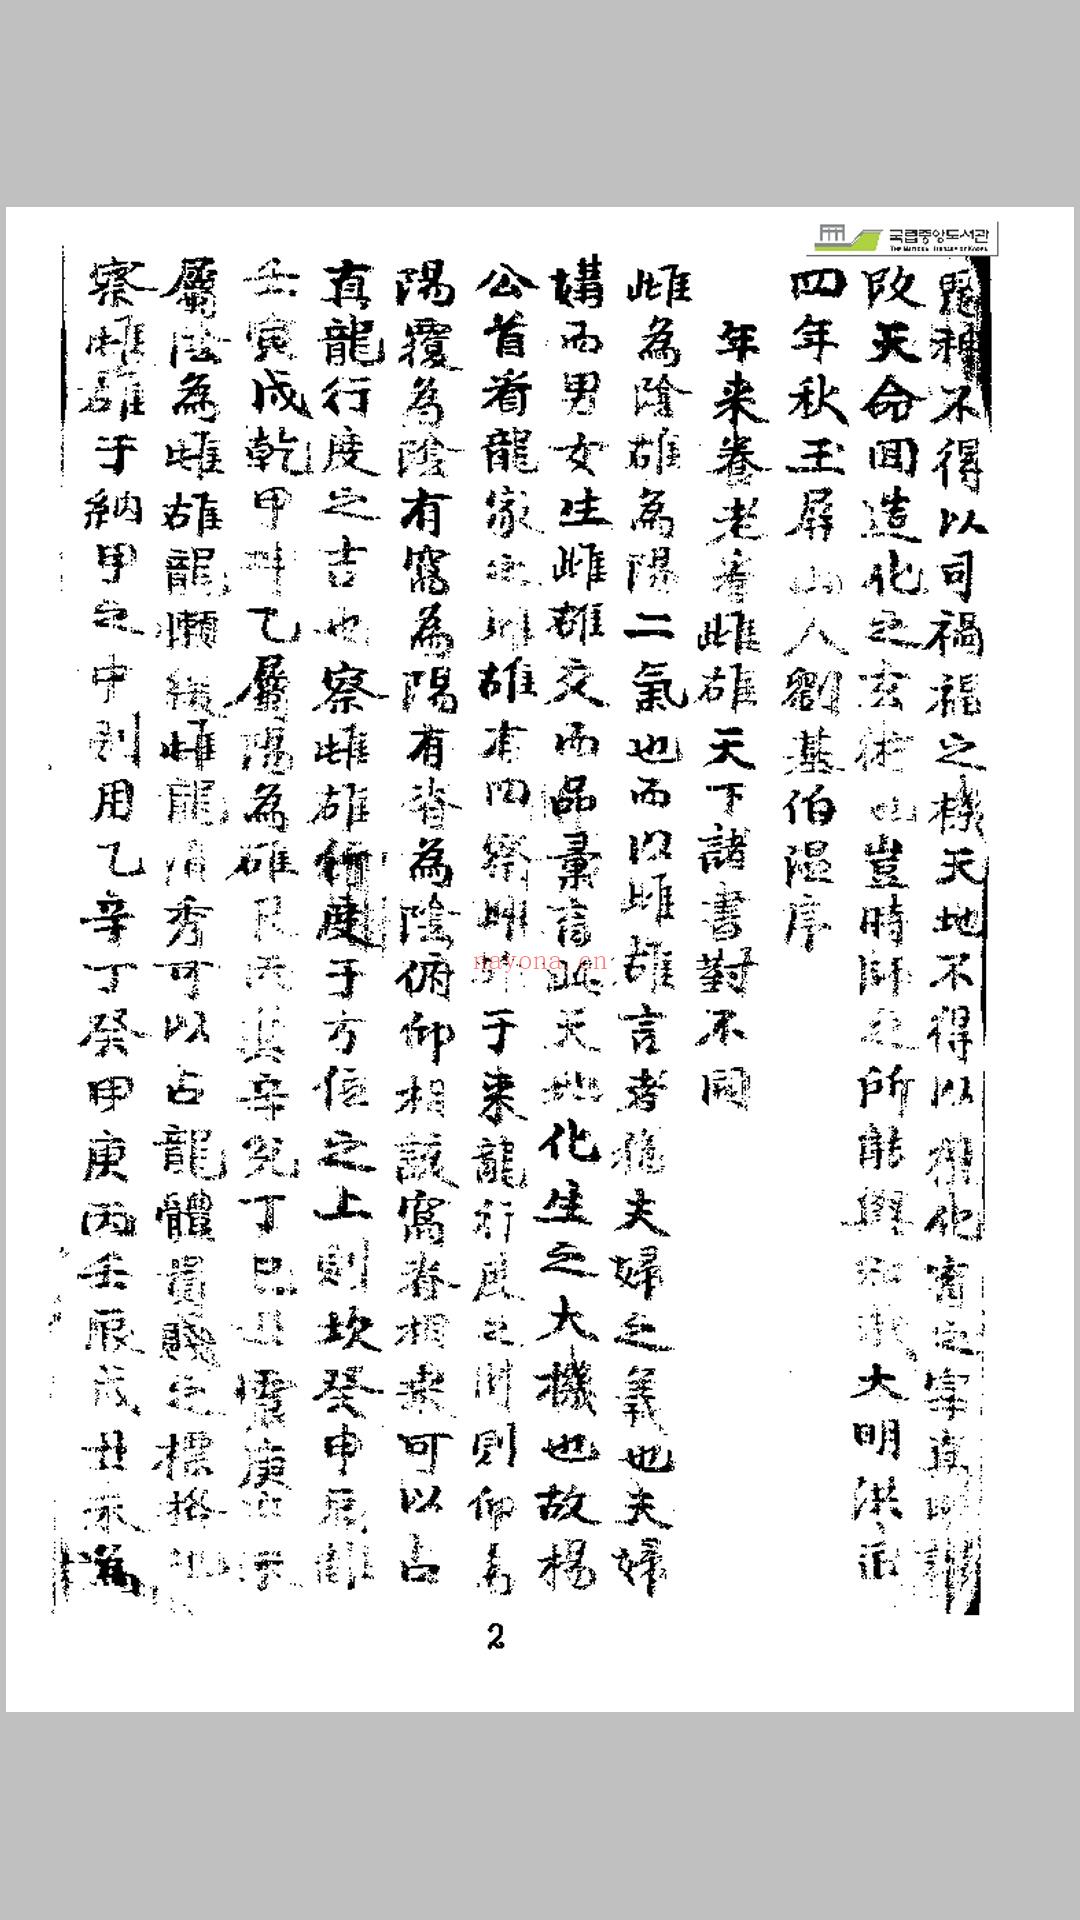 국립중앙도서관
THE NATIONAL LIBRARY OF KOREA
鬼神不得以司禍福之機天地不得以
改天命回造化之玄術也豈時師之所能與 大明洪武
四年秋玉屏山人劉基伯溫序
年来養老看雌雄天下諸書對不同
雌為陰雄為陽二氣也而以雌雄言者猶夫婦之義也夫婦
媾而男女生雌雄交而品彙育此天地化生之大機也故楊
公首看龍家之雌雄有四察雌雄于来龍行度之間則仰為
陽覆為陰有窩為陽有脊為陰俯仰相該窩脊相乘可以占
真龍行度之吉也察雌雄行度于方位之上則坎癸申辰離
壬寅戌乾甲坤乙屬陽為雄艮丙巽辛兌丁巳丑震庚亥未
屬陰為雌雄龍懶緩雌龍清秀可以占龍體貴賤之標格也
察雌雄于納甲之中則用乙辛丁癸甲庚丙壬辰戌丑未為
nayona.cn
2